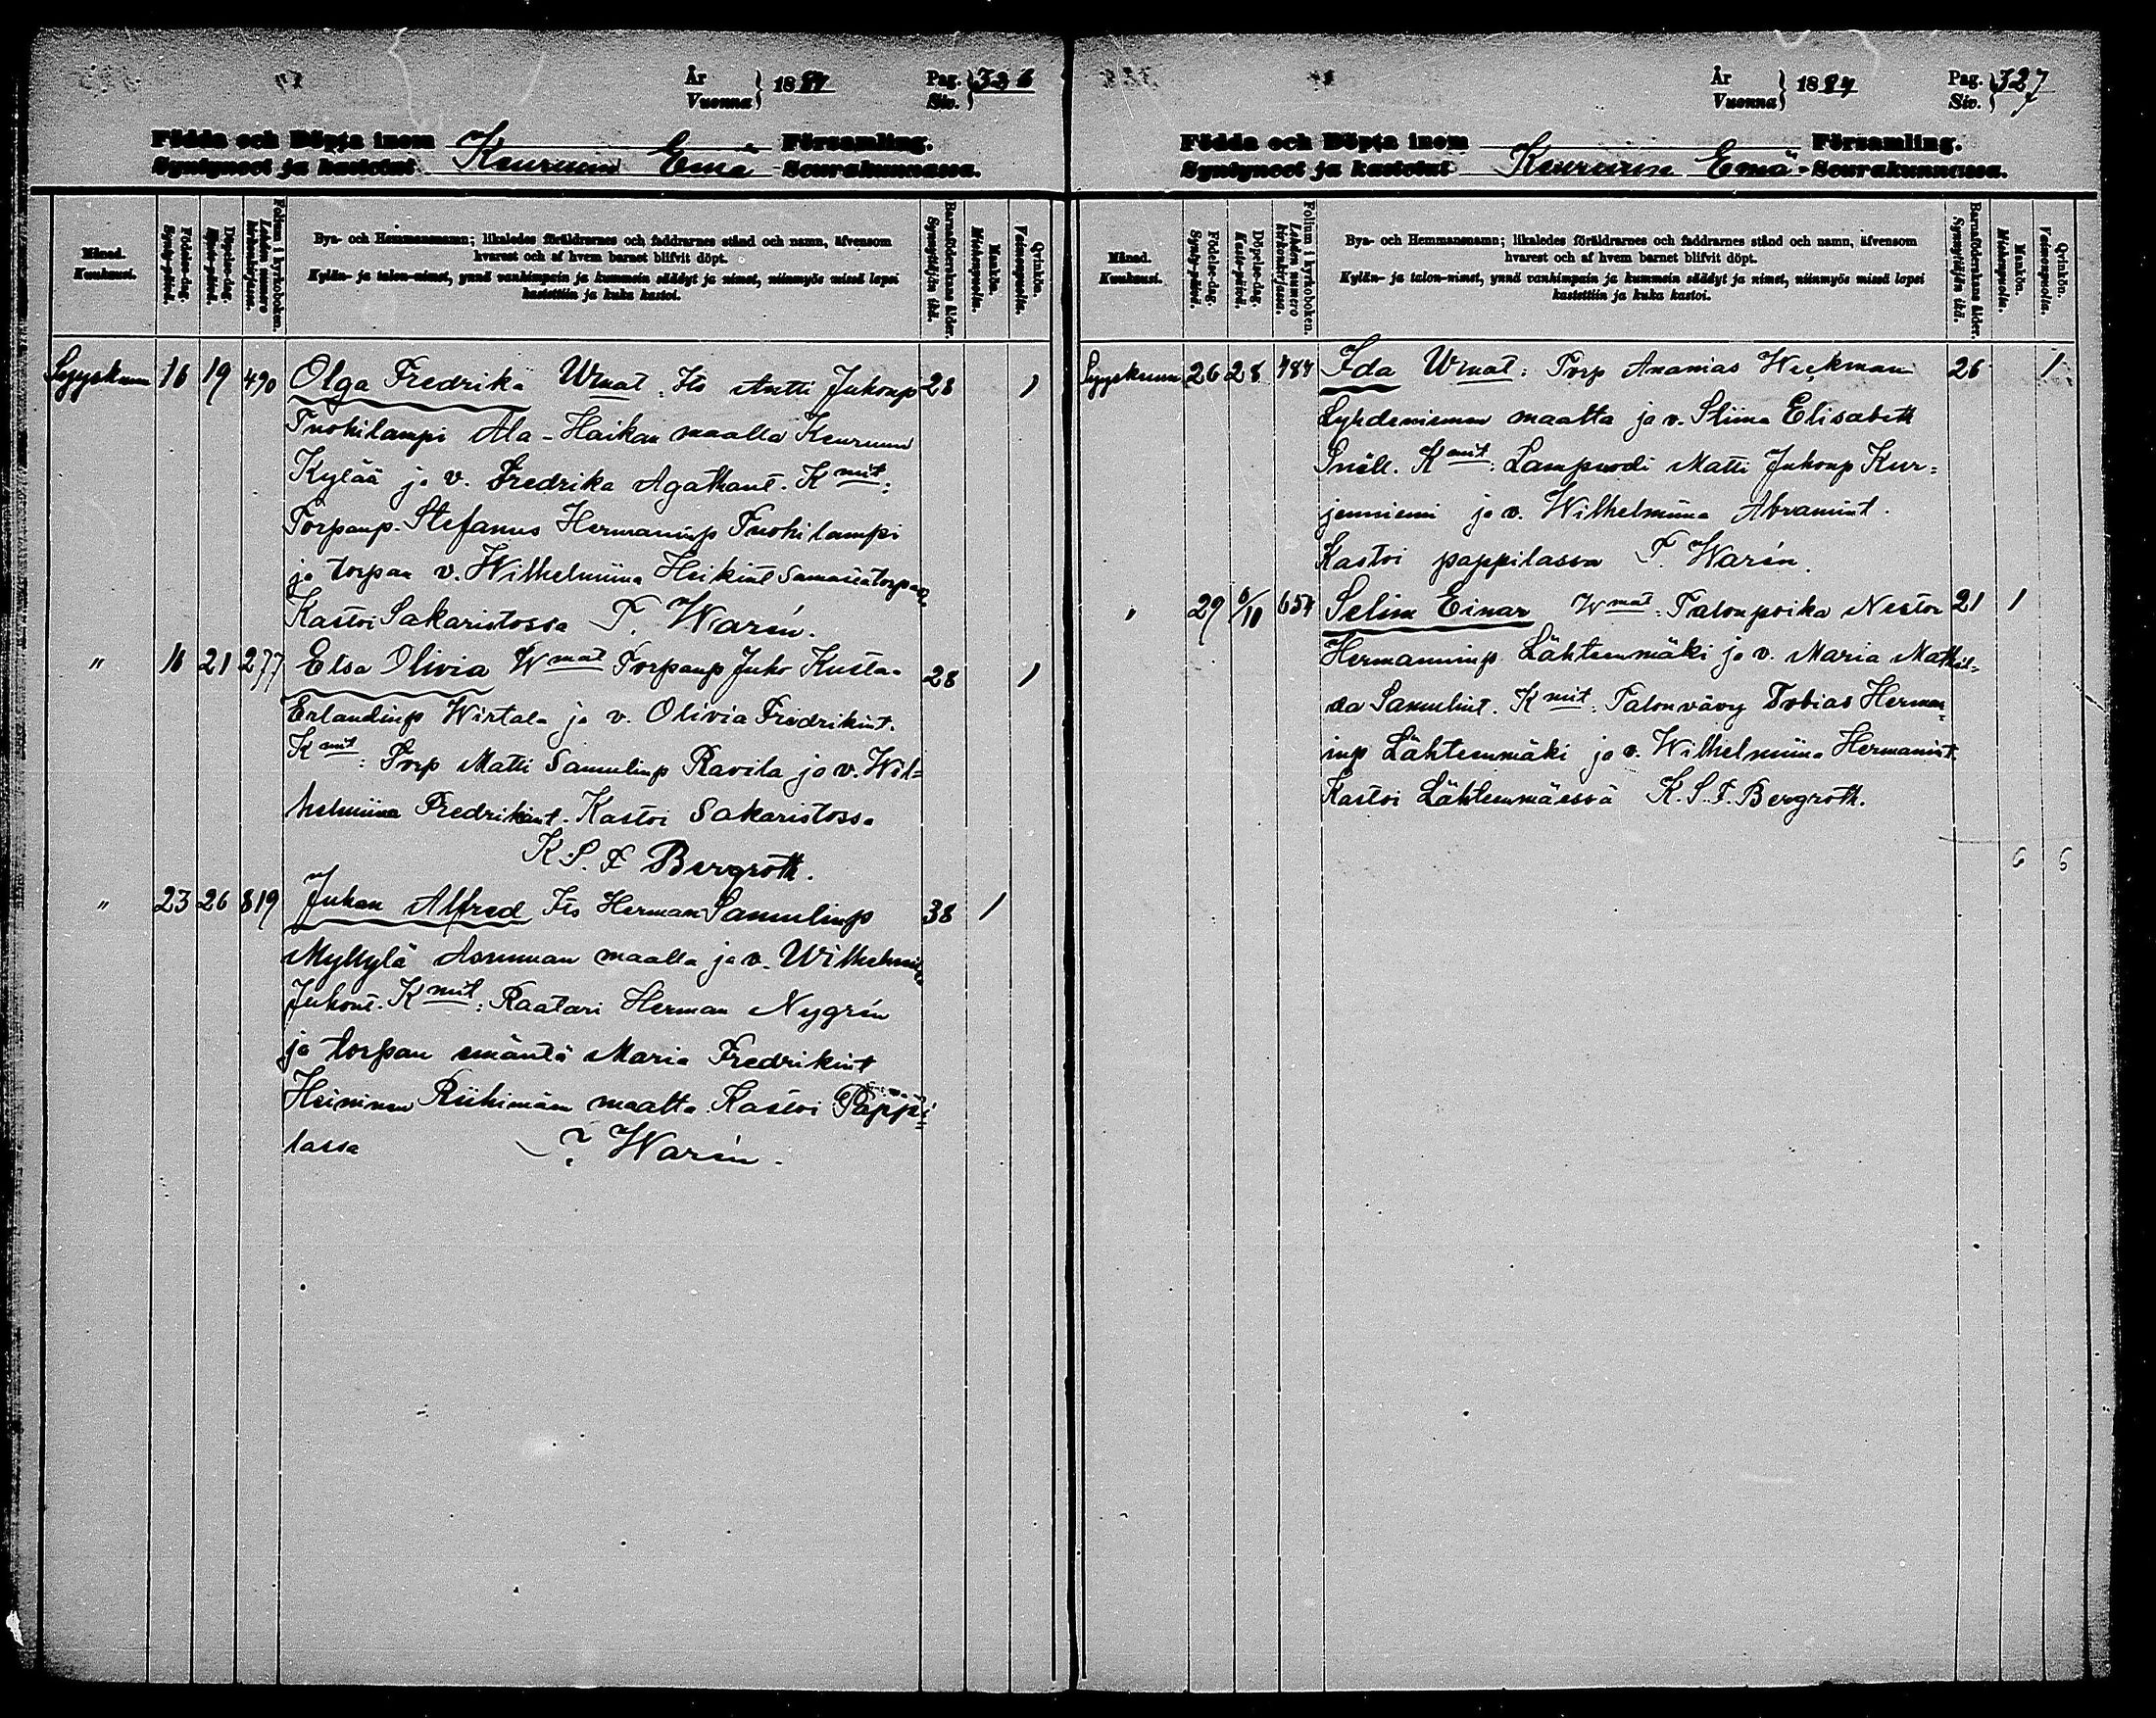 År
Vuonna } 1884 Pag.
Siv. } 326
Födda och Döpta inom Församling.
Syntyneet ja kastetut Keuruun Emä Seurakunnassa.
Månad.
Kuukausi.
Födelse-dag.
Synty-päivä.
Döpelse-dag.
Kaste-päivä.
Folium i kyrkoboken.
Lehden numero
kirkonkirjassa.
Bya- och Hemmansnamn; likaledes föräldrarnes och faddrarnes stånd och namn, äfvensom
hvarest och af hvem barnet blifvit döpt.
Kylän- ja talon-nimet, ynnä vanhimpain ja kummein säädyt ja nimet, niinmyös missä lapsi
kastettiin ja kuka kastoi.
Barnaföderskans ålder.
Synnyttäjän ikä.
Mankön.
Miehenpuolta.
Qvinkön.
Vaimonpuolta.
Syyskuun 16 19 490 Olga Fredrika Wmat. Its Antti Juhonp 28 1
Tuohilampi Ala-Haikan maalla Keuruun
Kylää ja v. Fredrika Agathant. Kmit:
Torpanp. Stefanus Hermaninp Tuohilampi
ja torpan v. Wilhelmiina Heikint samasta torpasta
Kastoi Sakaristossa F. Warén.
" 16 21 277 Elsa Olivia Wmat Torpanp Juho Kustaa 28 1
Erlandinp Wirtala ja v. Olivia Fredrikint.
Kmit: Torp Matti Samulinp Ravila ja v. Wil=
helmiina Fredrikint. Kastoi Sakaristossa
K. S. F Bergroth.
" 23 26 819 Juhan Alfred Its Herman Samulinp 38 1
Myllylä Asunnan maalla ja v. Wilhelmiina
Juhont. Kmit: Raatari Herman Nygrén
ja torpan emäntä Maria Fredrikint
Heininen Riihimäen maalta. Kastoi Pappi=
lassa F. Warén.
År
Vuonna } 1884 Pag.
Siv. } 327
Födda och Döpta inom Församling.
Syntyneet ja kastetut Keuruun Emä-Seurakunnassa.
Månad.
Kuukausi.
Födelse-dag.
Synty-päivä.
Döpelse-dag.
Kaste-päivä.
Folium i kyrkoboken.
Lehden numero
kirkonkirjassa.
Bya- och Hemmansnamn; likaledes föräldrarnes och faddrarnes stånd och namn, äfvensom
hvarest och af hvem barnet blifvit döpt.
Kylän- ja talon-nimet, ynnä vanhimpain ja kummein säädyt ja nimet, niinmyös missä lapsi
kastettiin ja kuka kastoi.
Barnaföderskans ålder.
Synnyttäjän ikä.
Mankön.
Miehenpuolta.
Qvinkön.
Vaimonpuolta.
Syyskuun 26 28 484 Ida Wmat: Torp Ananias Weckman 26 1
Lyhdeniemen maalta ja v. Stiina Elisabeth
Snäll. Kmit: Lampuodi Matti Juhonp Kur=
jenniemi ja v. Wilhelmiina Abramint.
Kastoi pappilassa F. Warén.
" 29 6/10 654 Selim Einar Wmat: Talonpoika Nestor 21 1
Hermanninp Lähteenmäki ja v. Maria Mathil=
da Samulint. Kmit: Talonvävy Tobias Herman=
inp Lähteenmäki ja v. Wilhelmiina Hermanint.
Kastoi Lähteenmäessä K. S. F. Bergroth.
6 6